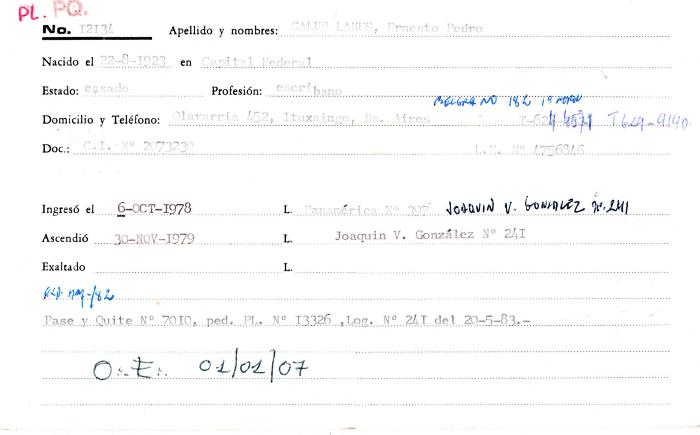 PL. PQ.
No. I2I34 Apellido y nombres: GALUP LANUS, Ernesto Pedro
Nacido el 22-8-I923 en Capital Federal
Estado: casado Profesión: escribano
BELGRANO 182 1º MORON
Domicilio y Teléfono: Olavarria 452, Ituzaingo, Bs. Aires T-624-4571 T629-9140
Doc.: C.I. Nº 2073230 L.E. Nº 4756846
Ingresó el 6-OCT-I978 L. Panamérica Nº 397 JOAQUIN V. GONZALEZ Nº. 241
Ascendió 30-NOV-I979 L. Joaquin V. González Nº 24I
Exaltado L.
/82
Pase y Quite Nº 70I0, ped. PL. Nº I3326 ,Log. Nº 24I del 20-5-83.-
O∴E∴ 01/01/07